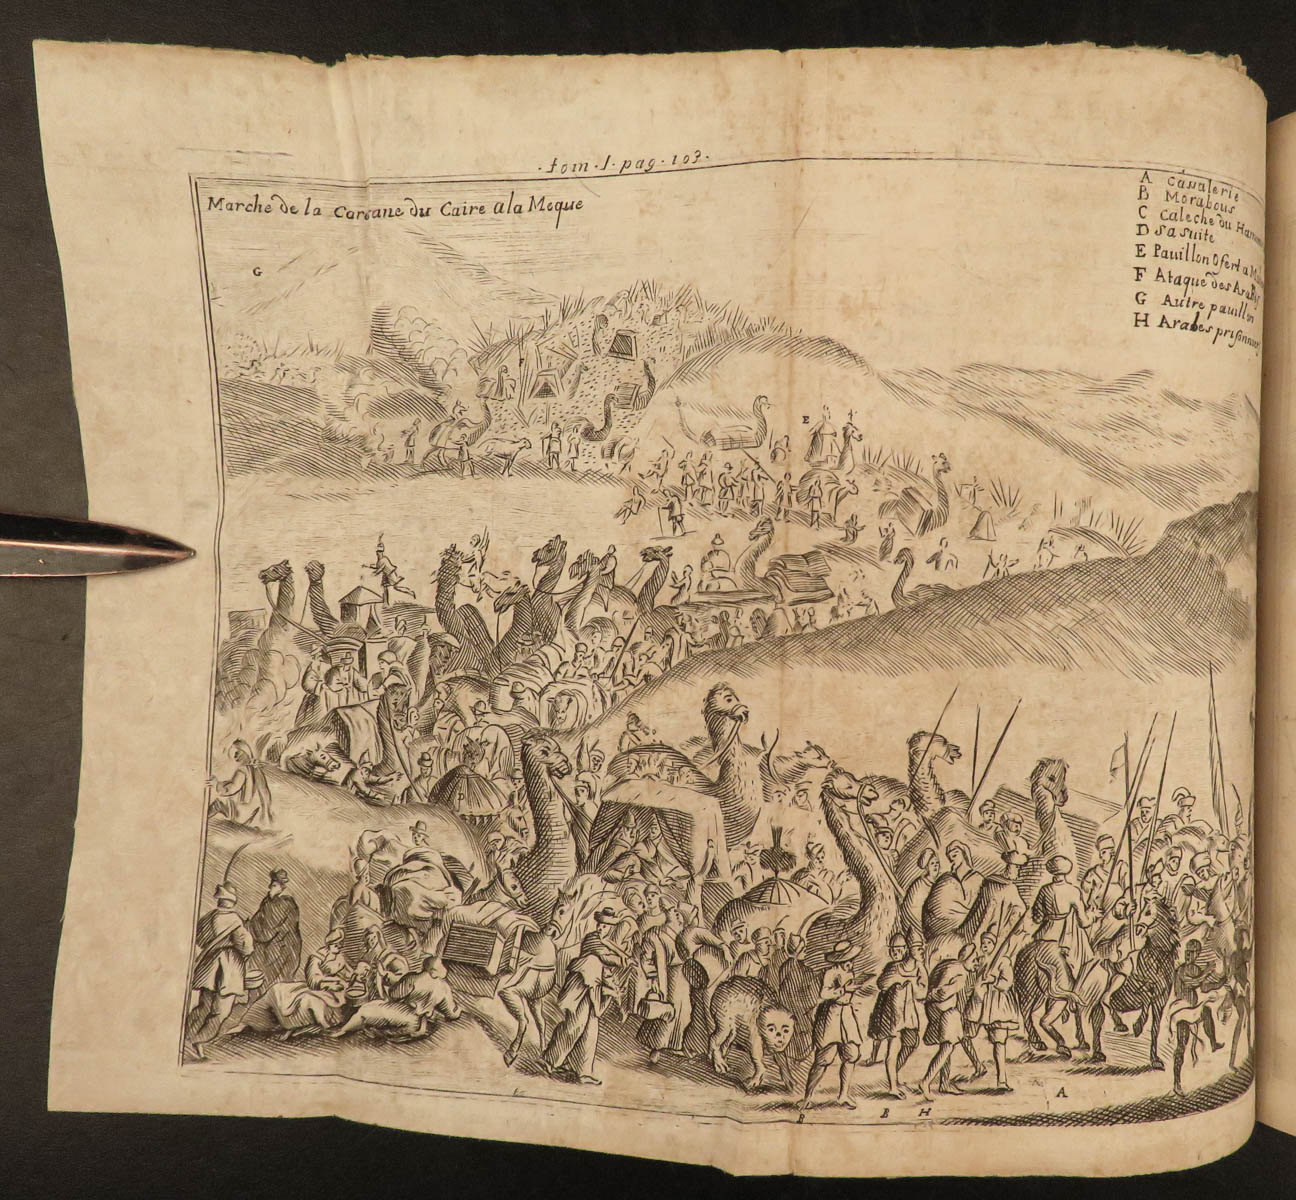 tom·1·pag·103·
Marche de la Caravane du Caire a la Meque
A Cavalerie
B Morabous
C Caleche du
D sa suite
E Pavillon Ofert a
F Ataque des Arabes
G Autre pavillon
H Arabes prisonniers
G
F
E
B
B
H
A
A